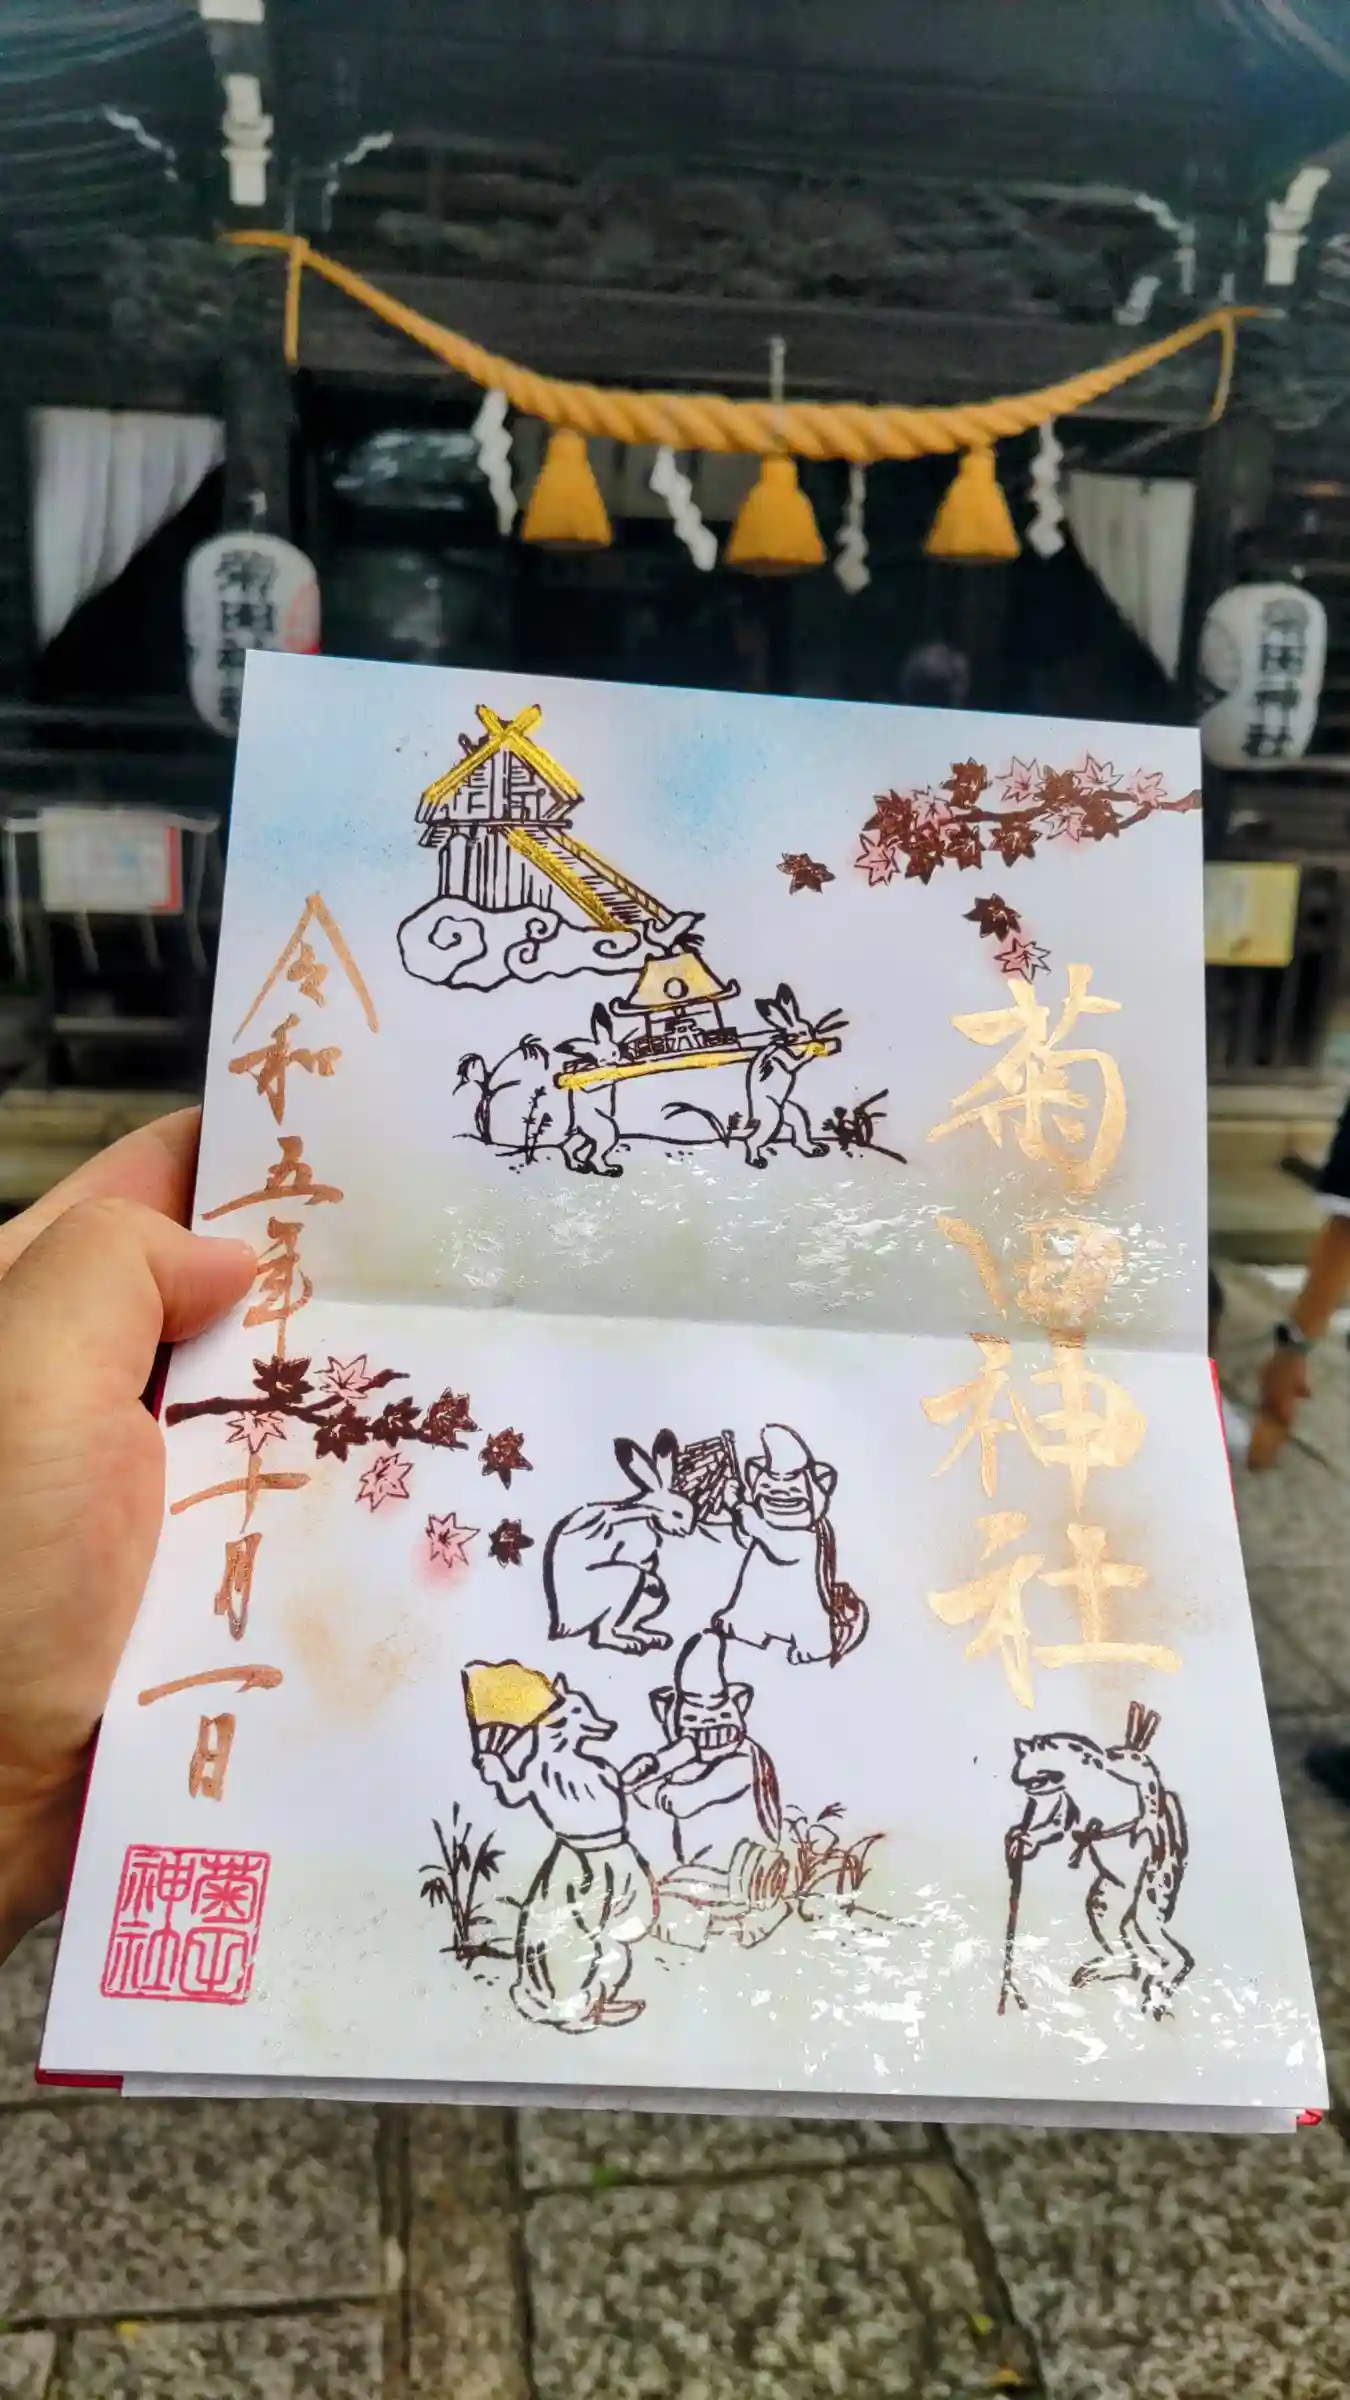 菊田神社
菊田神社
菊田神社
令和五年十月一日
菊田神社